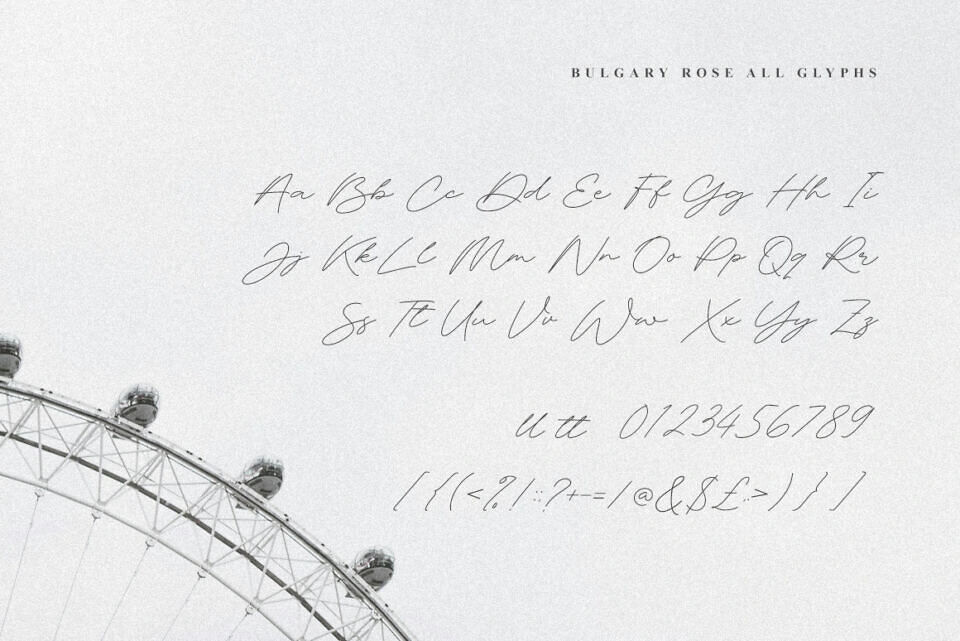 BULGARY ROSE ALL GLYPHS
Aa Bb Cc Dd Ee Ff Gg Hh Ii
Jj Kk Ll Mm Nn Oo Pp Qq Rr
Ss Tt Uu Vv Ww Xx Yy Zz
ll tt 0123456789
[ { ( < % ! : ; ? + - = / @ & $ £ . , > ) } ]